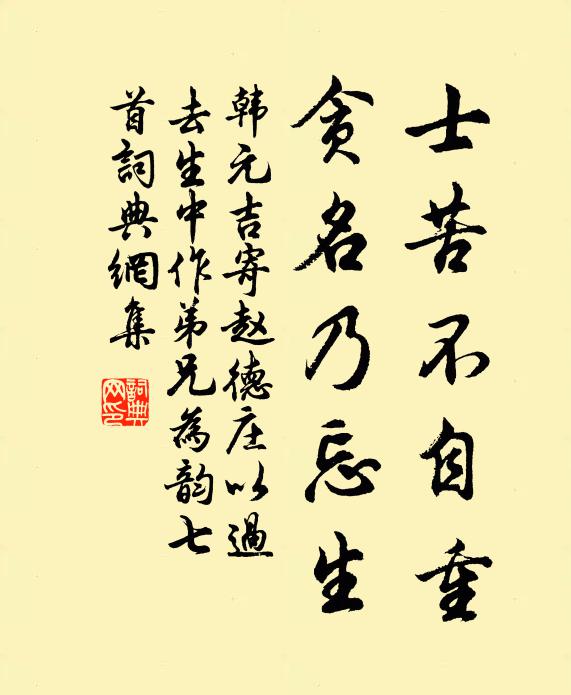 士苦不自重
贪名乃忘生
韩元吉寄赵德庄以過
去生中作弟兄為韵七
首詞典網集
詞典
网印